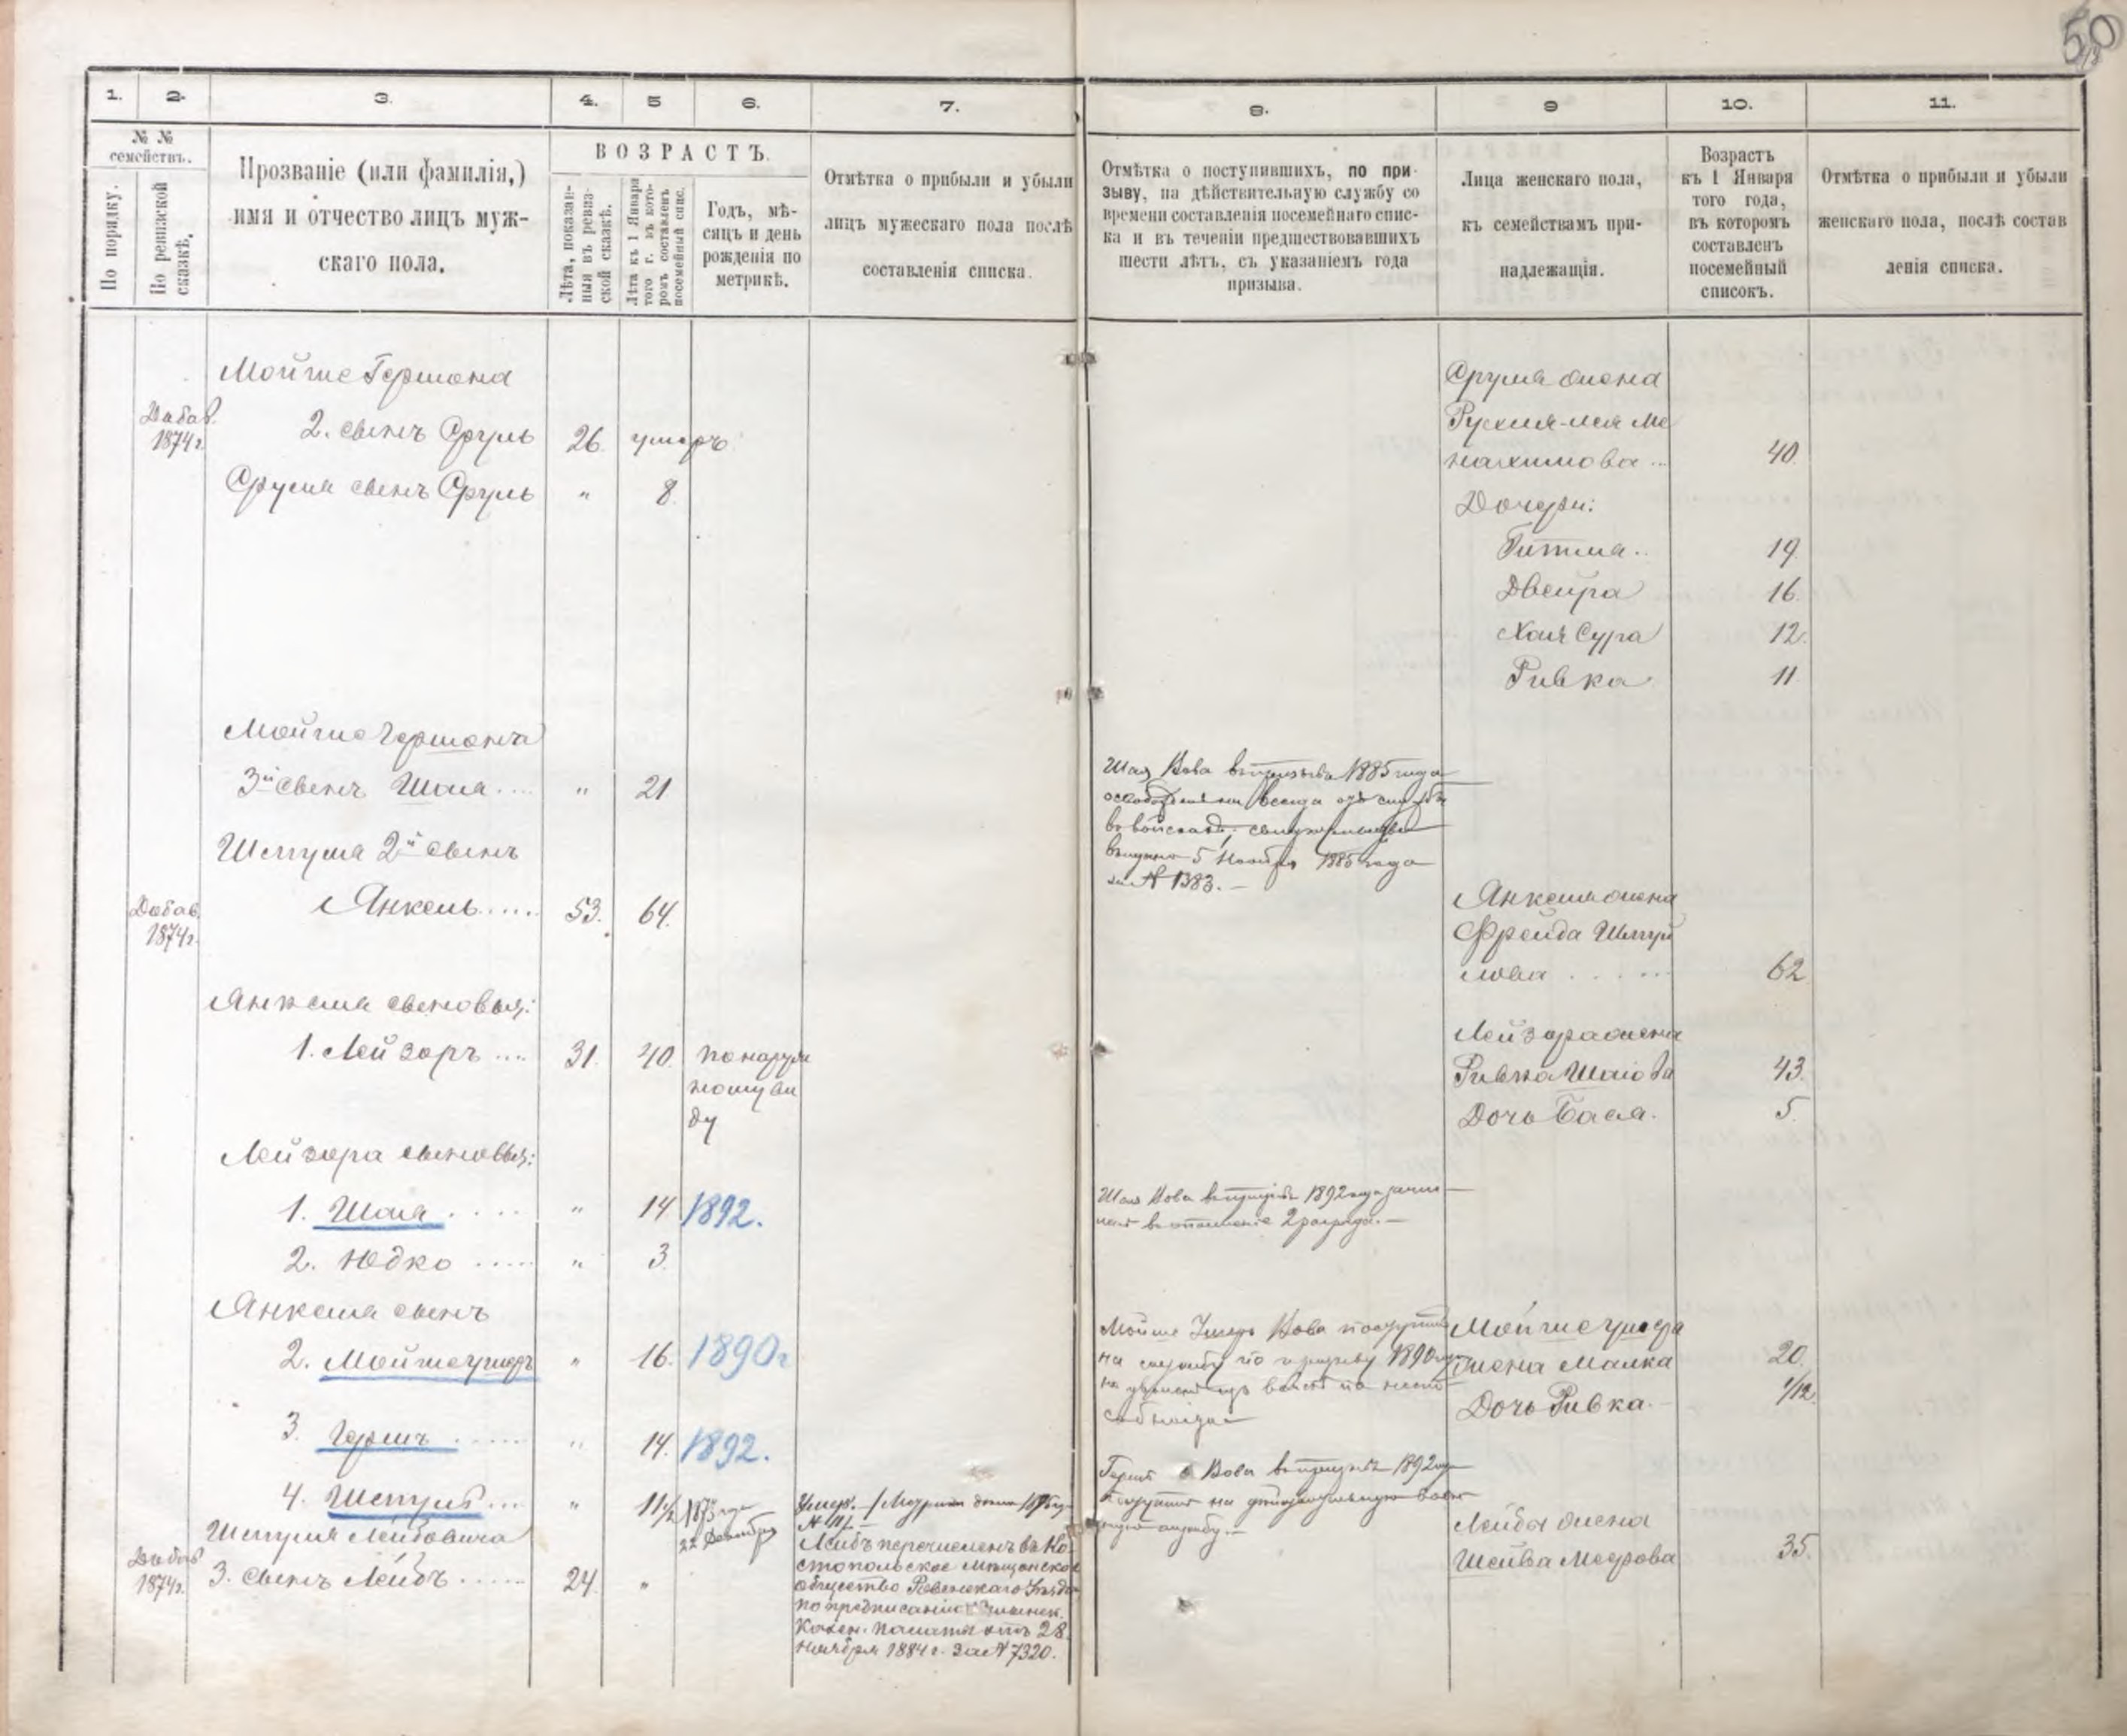 50
1. 2. 3. 4. 5 6. 7. 8. 9 10. 11.
№ №
семействъ.
По порядку.
По ревизской
сказкѣ.
Прозваніе (или фамилія,)
имя и отчество лицъ муж-
скаго пола.
ВОЗРАСТЪ.
Лѣта, показан-
ныя въ ревиз-
ской сказкѣ.
Лѣта къ 1 Января
того г. въ кото-
ромъ составленъ
посемейный спис.
Годъ, мѣ-
сяцъ и день
рожденія по
метрикѣ.
Отмѣтка о прибыли и убыли
лицъ мужескаго пола послѣ
составленія списка.
Отмѣтка о поступившихъ, по при-
зыву, на дѣйствительную службу со
времени составленія посемейнаго спис-
ка и въ теченіи предшествовавшихъ
шести лѣтъ, съ указаніемъ года
призыва.
Лица женскаго пола,
къ семействамъ при-
надлежащія.
Возрастъ
къ 1 Января
того года,
въ которомъ
составленъ
посемейный
списокъ.
Отмѣтка о прибыли и убыли
женскаго пола, послѣ состав
ленія списка.
Мойше Гершона
Добав.
1874 г.
2. сынъ Сруль 26. умеръ
Сруля сынъ Сруль " 8.
Сруля жена
Рухля-Лея Ме
нахимова... 40.
Дочери:
Гитля.. 19.
Двейра 16.
Хая Сура 12.
Ривка 11.
Мойше Гершона
3й сынъ Шая.... " 21
Шая Вова въ призыва 1885 года
навсегда отъ службы
въ войскахъ, свидѣтельство
выдано 5 Ноября 1885 года
за № 1383. —
Шмуля 2й сынъ
Добав.
1874 г.
Янкель..... 53. 64.
Янкеля жена
Фрейда Шмуй
лова...... 62
Янкеля сыновья:
1. Лейзоръ.... 31. 40. по наруж
ному ви
ду
Лейзора жена
Ривка Шаіова 43.
Дочь Бася. 5.
Лейзора сыновья:
1. Шая.... " 14 1892.
Шая Вова въ призывъ 1892 года зачис
ленъ въ ополченіе 2 разряда. —
2. Юдко..... " 3.
Янкеля сынъ
2. Мойше Умеръ " 16. 1890 г
Мойше Умеръ Вова поступилъ
на службу по призыву 1890 года
Мойше Умера
жена Малка 20.
Дочь Ривка. 1/12.
3. Гершъ...... " 14. 1892.
Гершъ Вова въ призывъ 1892 года
поступилъ на дѣйствительную воен
ную службу. —
4. Шмуль... " 11 1/2 1873 года
22 Декабря
Умеръ.
Шмуля Лейбовича
Добав
1874 г.
3. сынъ Лейбъ...... 24. "
Лейбъ перечисленъ въ Ко
стопольское мѣщанское
общество Ровенскаго уѣзда
по предписанію
Казен. Палаты отъ 28
Ноября 1884 г. за № 7320.
Лейба жена
Шейва Меерова 35.